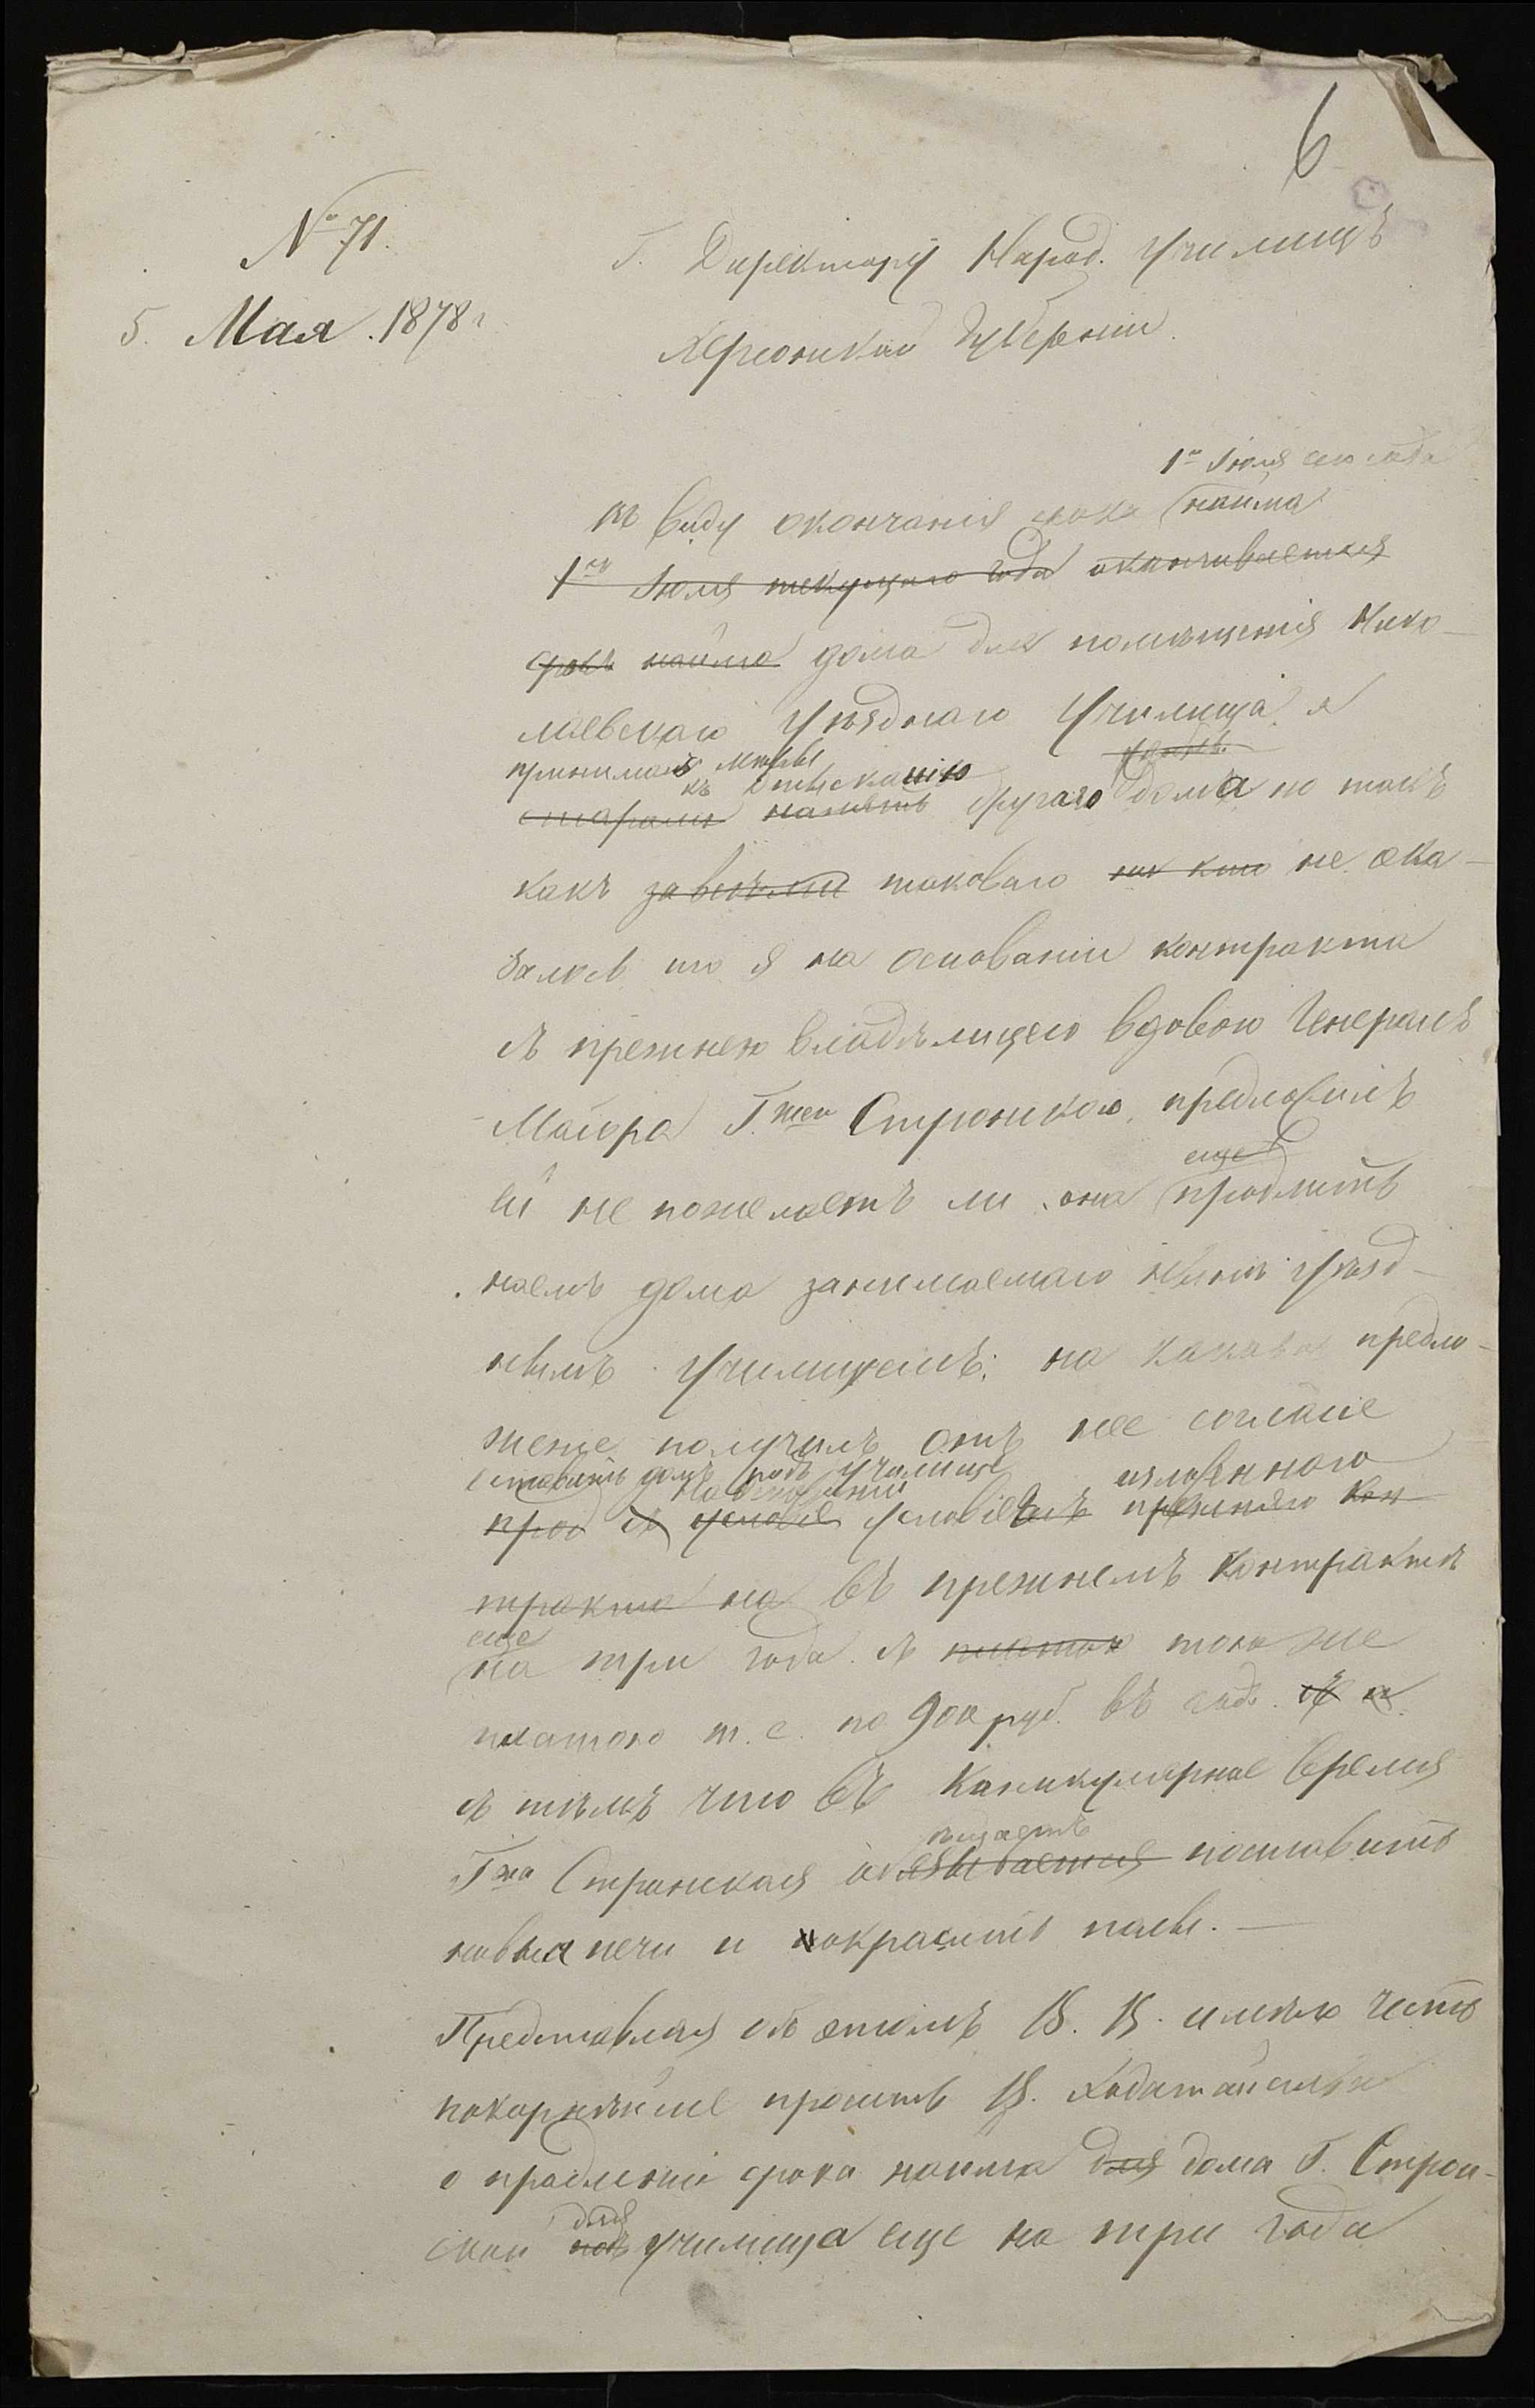 6
№ 71.
5. Мая. 1878 г
Г. Директору Народ. Училищъ
Херсонской Губерніи.
1го Іюля сего года
въ виду окончанія срока найма
1го Іюля текущаго года оканчивается
срокъ найма дома для помѣщенія Нико-
лаевскаго Уѣзднаго Училища я
принималъ мѣры
къ отысканію
старался нанять другаго дома но такъ
какъ таковаго не ока-
залось то я на основаніи контракта
съ прежнею владѣлицею вдовою Генералъ
Маіора Г.жею Стронскою, предложилъ
еще
ей не пожелаетъ ли она продлить
наемъ дома занимаемаго нынѣ Уѣзд-
нымъ училищемъ; на каковое предло-
женіе получилъ отъ нее согласіе
оставить домъ подъ училище
на основаніи изложеннаго
прод съ условіе условіемъ прежняго кон-
тракта на въ прежнемъ контрактѣ
еще
на три года съ платою тою же
платою т. е. по 900 руб. въ годъ. съ
съ тѣмъ что въ каникулярное время
Г.жа Стронская обязывается поставить
новыя печи и покрасить полы. —
Представляя объ этомъ В. В. имѣю честь
покорнѣйше просить В. ходатайства
о продленіи срока найма для дома Г. Строн-
для
ской подъ училища еще на три года